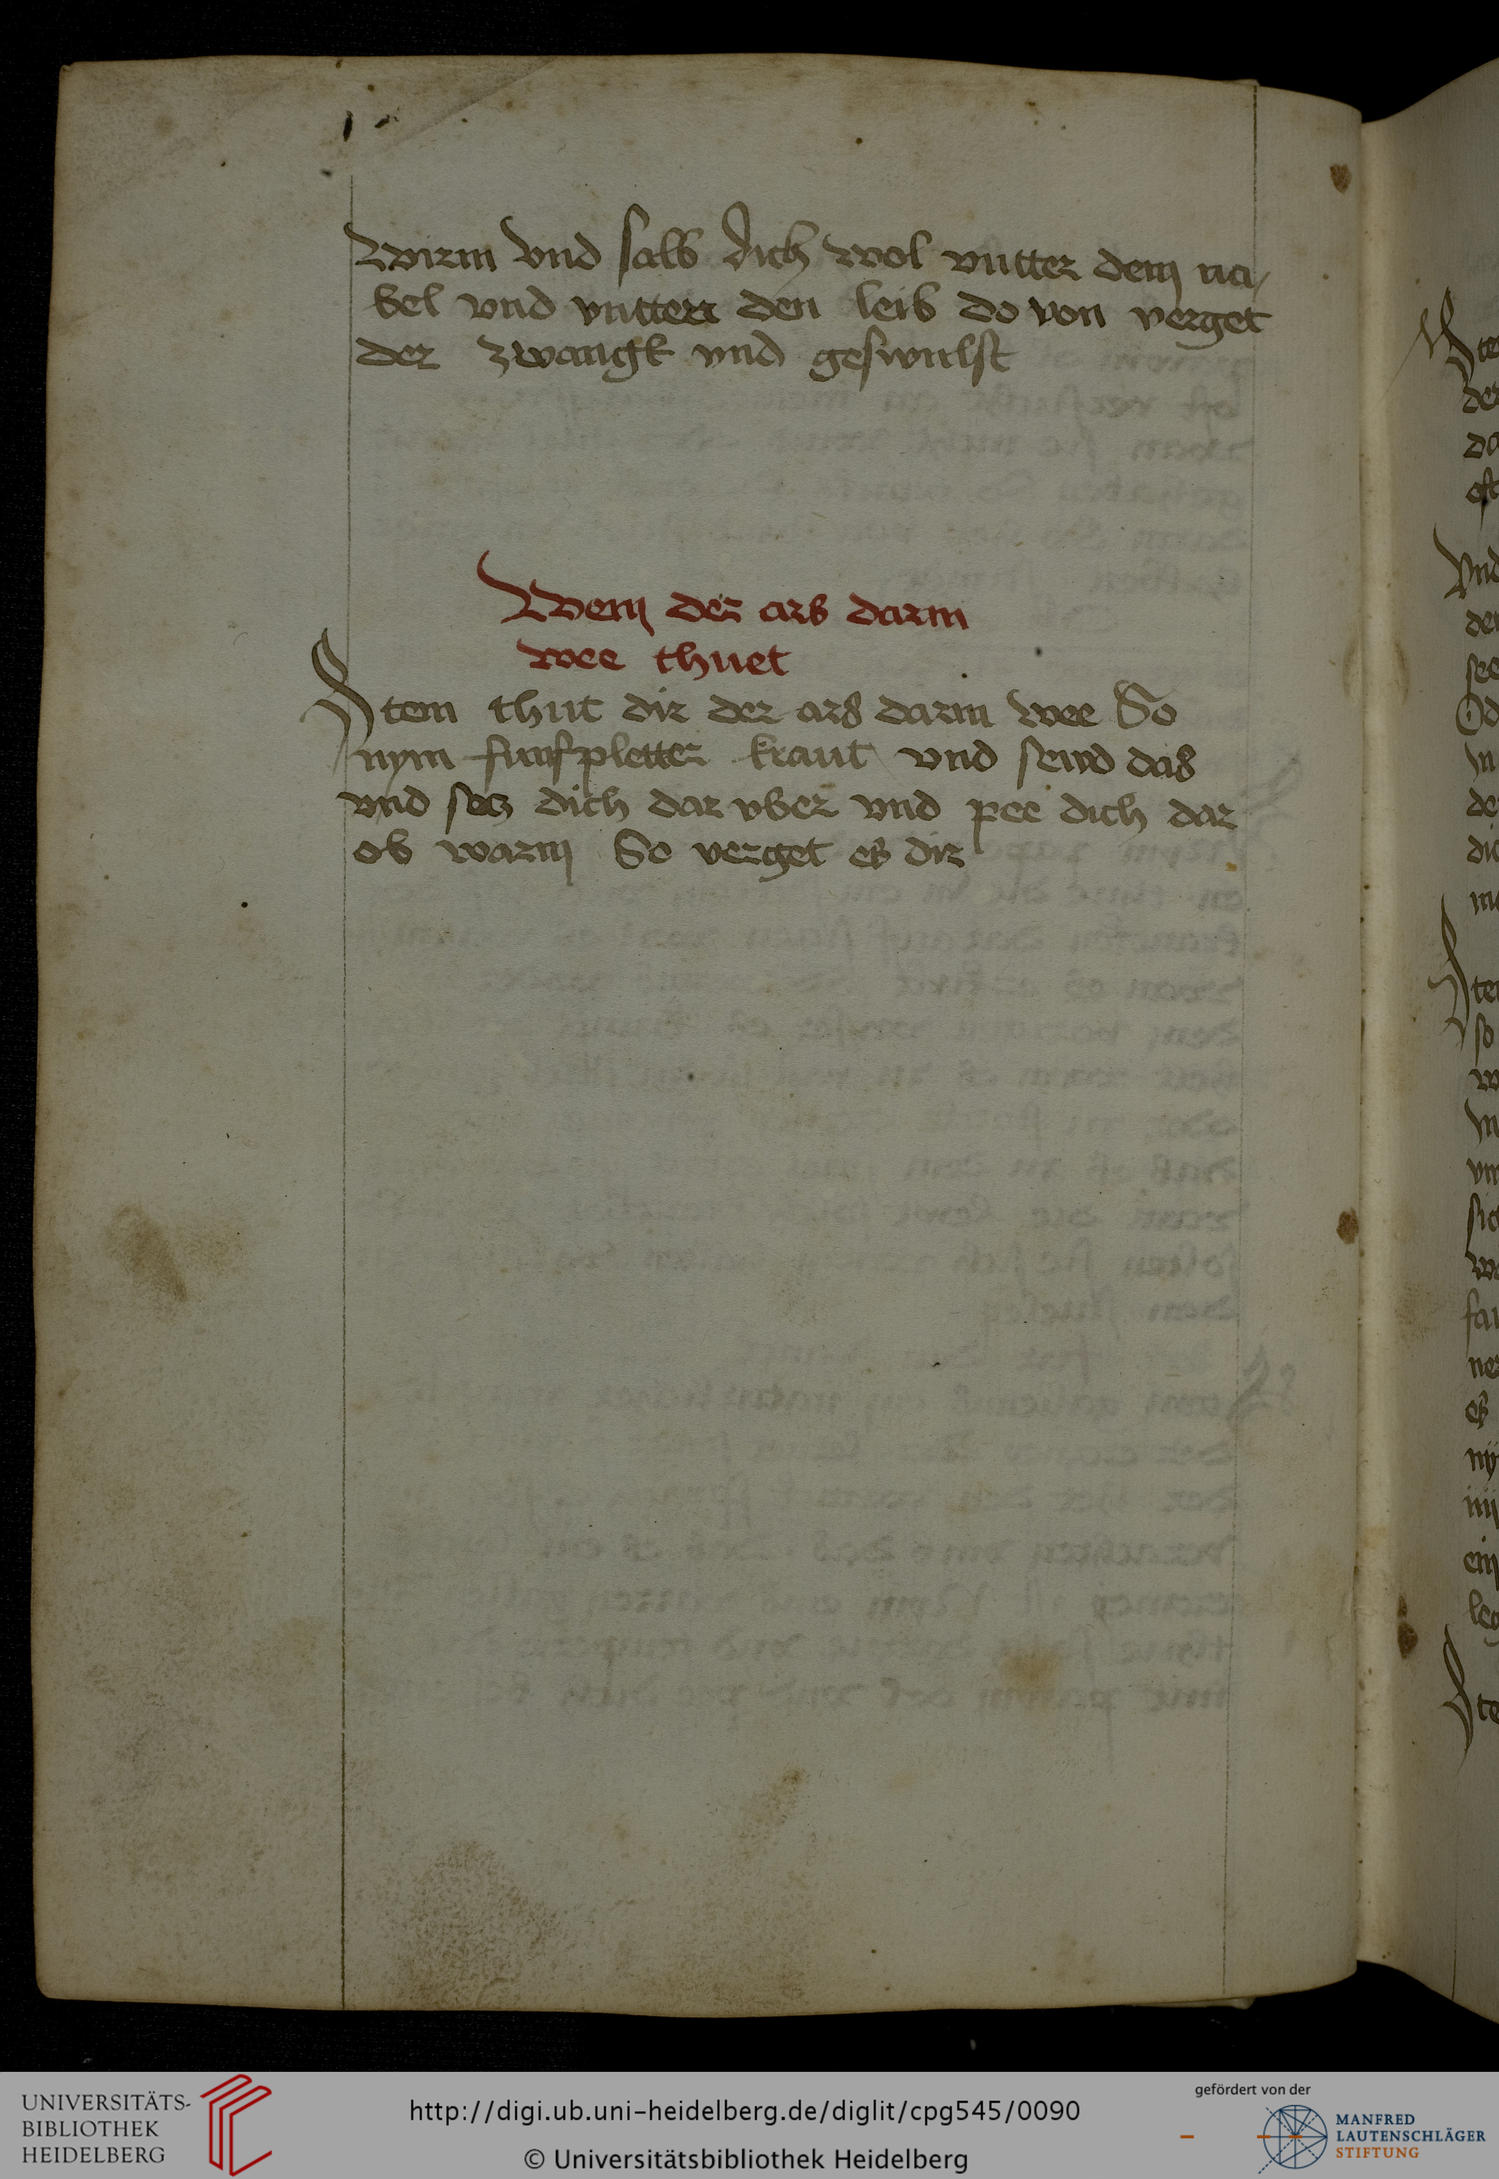 Wirm vnd salb dich wol vntter dem na/
bel vnd vntterr den leib do von verget
der zwangk vnd geswulst
Wem der ars darm
wee thuet
Item thut dir der ars darm wee So
nym funfpletter kraut vnd sewd das
vnd setz dich dar vber vnd pee dich dar
ob warm So verget es dir
UNIVERSITÄTS-
BIBLIOTHEK
HEIDELBERG
http://digi.ub.uni-heidelberg.de/diglit/cpg545/0090
© Universitätsbibliothek Heidelberg
gefördert von der
MANFRED
LAUTENSCHLÄGER
STIFTUNG